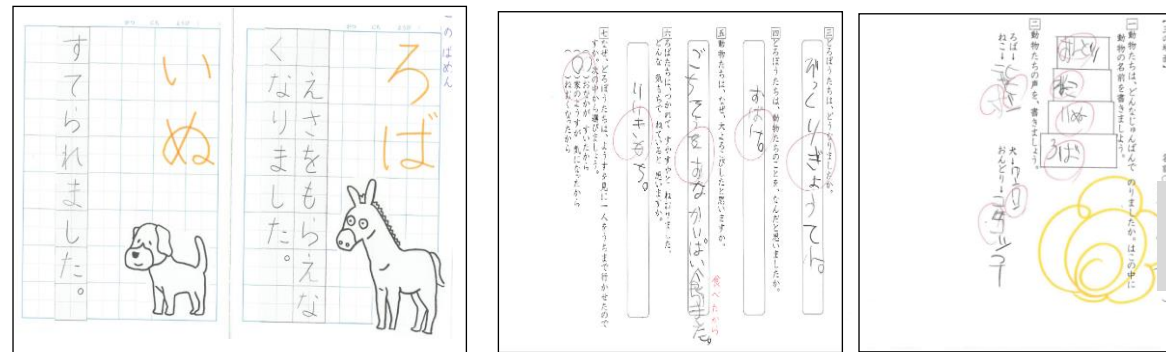 このばめん
ろば
えさをもらえな
くなりました。
いぬ
すてられました。
三 どろぼうたちは、どうなりましたか。
びっくりぎょうてん。
四 どろぼうたちは、動物たちのことを、なんだと思いましたか。
おばけ。
五 動物たちは、なぜ、大よろこびしたと思いますか。
食べたから
六 ろばたちに、つかれて すやすやと ねむりました。
どんな 気もちで ねていると 思いますか。
いいきもち。
七 なぜ、どろぼうたちは、ようすを見に 一人をうちまで行かせたので
すか。次の中から選びましょう。
( )おなかが すいたから
(○)家のようすが 気になったから
( )ねむくなったから
一 動物たちは、どんなじゅんばんで のりましたか。はこの中に
動物の名前を書きましょう。
おんどり
ねこ
いぬ
ろば
二 動物たちの声を、書きましょう。
ろば→
犬→ワンワン
ねこ→
おんどり→